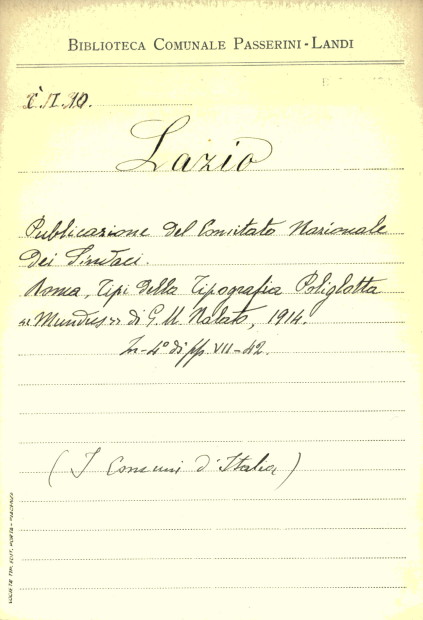 BIBLIOTECA COMUNALE PASSERINI-LANDI
Lazio
Pubblicazione del Comitato Nazionale
dei Sindaci.
Roma, Tipi della Tipografia Poliglotta
"Mundus" di G. U. Nalato, 1914.
In-4° di pp. VII-42.
(I Comuni d'Italia)